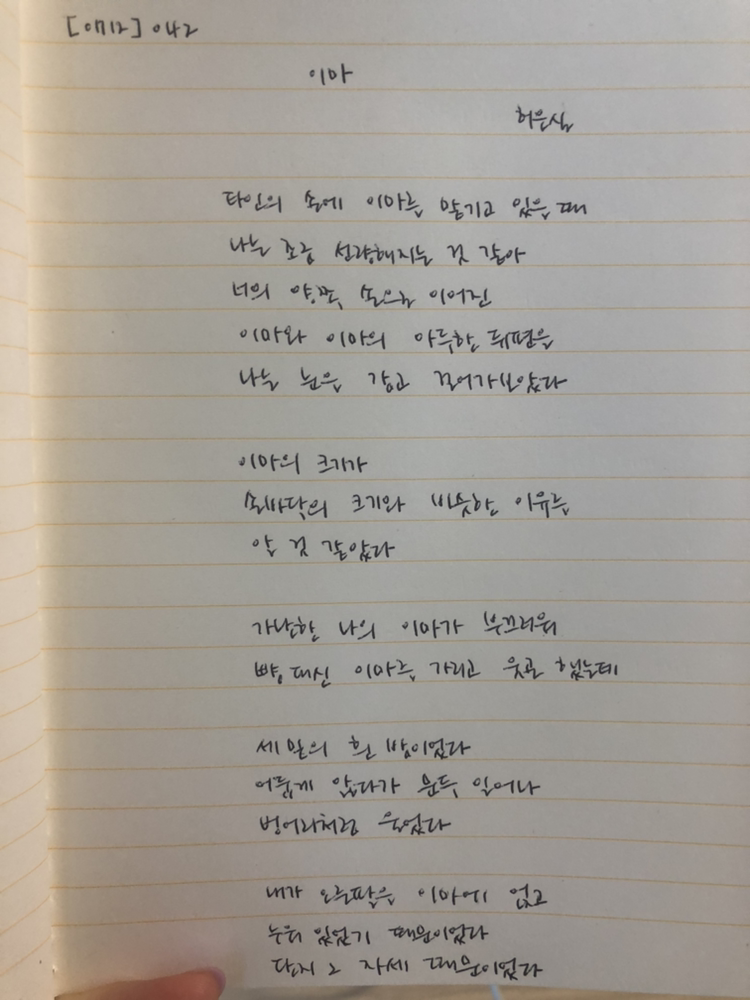 [0712] 042
이마
허은실
타인의 손에 이마를 맡기고 있을 때
나는 조금 선량해지는 것 같아
너의 양쪽 손으로 이어진
이마와 이마의 아득한 뒤편을
나는 눈을 감고 걸어가보았다
이마의 크기가
손바닥의 크기와 비슷한 이유를
알 것 같았다
가난한 나의 이마가 부끄러워
뺨 대신 이마를 가리고 웃곤 했는데
세밑의 흰 밤이었다
어둡게 앓다가 문득 일어나
벙어리처럼 울었다
내가 오른팔을 이마에 얹고
누워 있었기 때문이었다
단지 그 자세 때문이었다